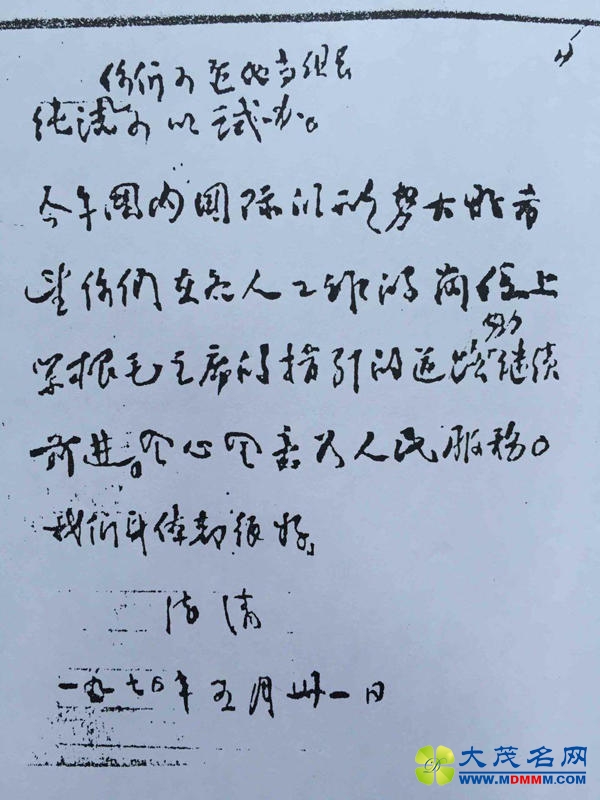 你们可
纯洁可以试办。
今年国内国际的形势大好希
望你们在各人工作的岗位上
毛主席的指引的道路继续
前进。全心全意为人民服务。
我们身体都很好。
清
一九七〇年五月卅一日
大茂名网
WWW.MDMMM.COM